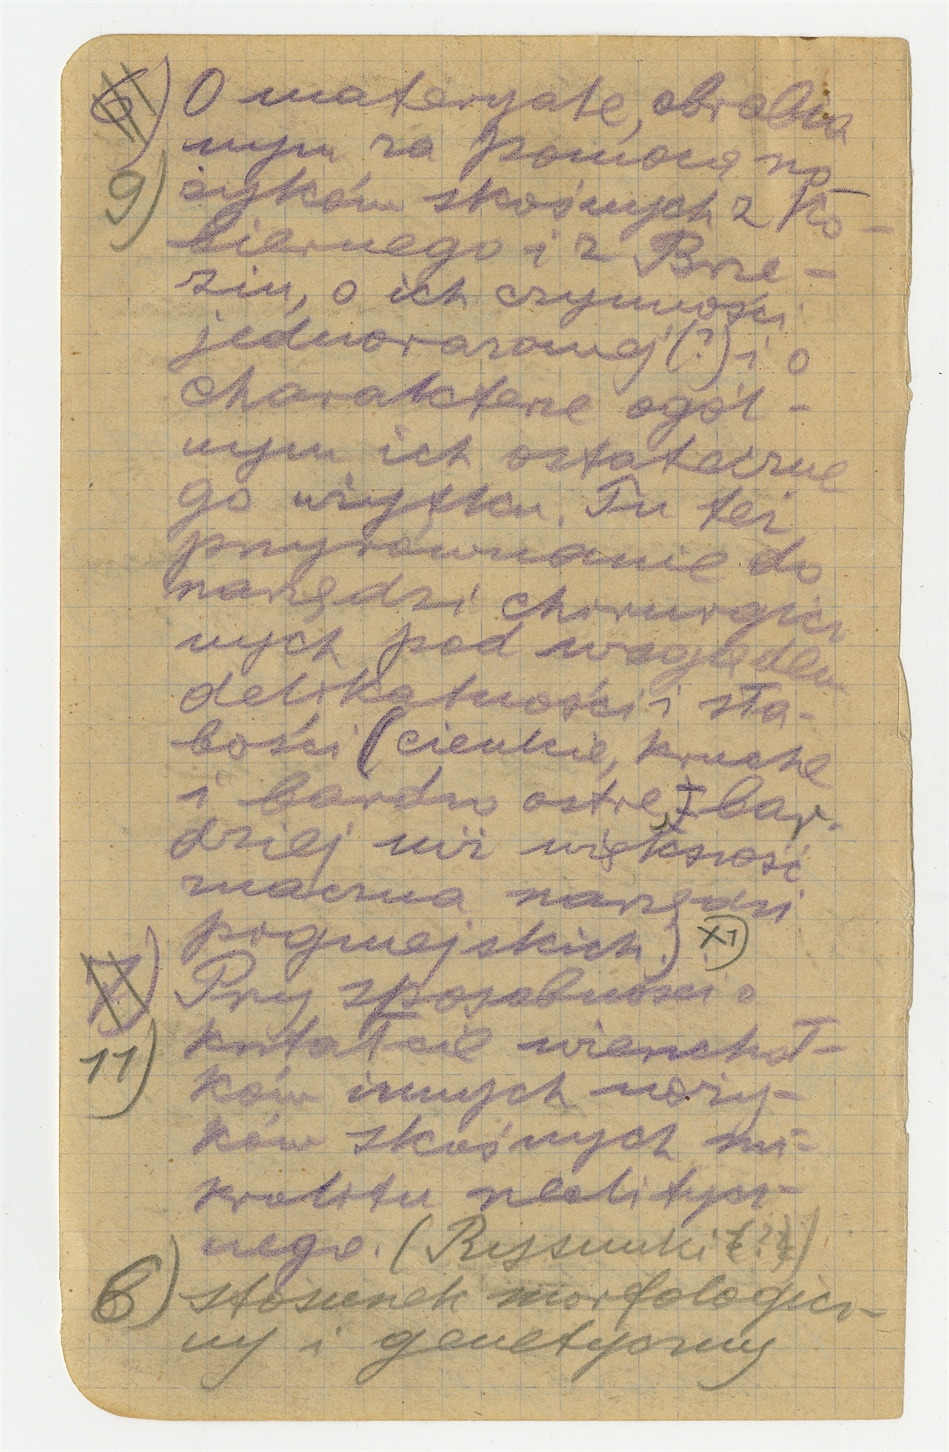 6) O materyale, obrabia
nym za pomocą no
9) żyków skośnych z Ko-
biernego i z Brze-
zin, o ich czynności
jednorazowej (?) i o
charakterze ogól-
nym ich ostateczne
go użytku. Tu też
przyrównanie do
narzędzi chirurgicz
nych pod względem
delikatności i sła-
bości (cienkie, kruche
i bardzo ostre) bar-
dziej niż większość
znaczna narzędzi
pigmejskich.) X1)
7) Przy sposobności o
11) kształcie wierzchoł-
ków innych noży-
ków skośnych mi-
krolitu neolitycz-
nego. (Rysunki (?))
6) stosunek morfologicz-
ny i genetyczny